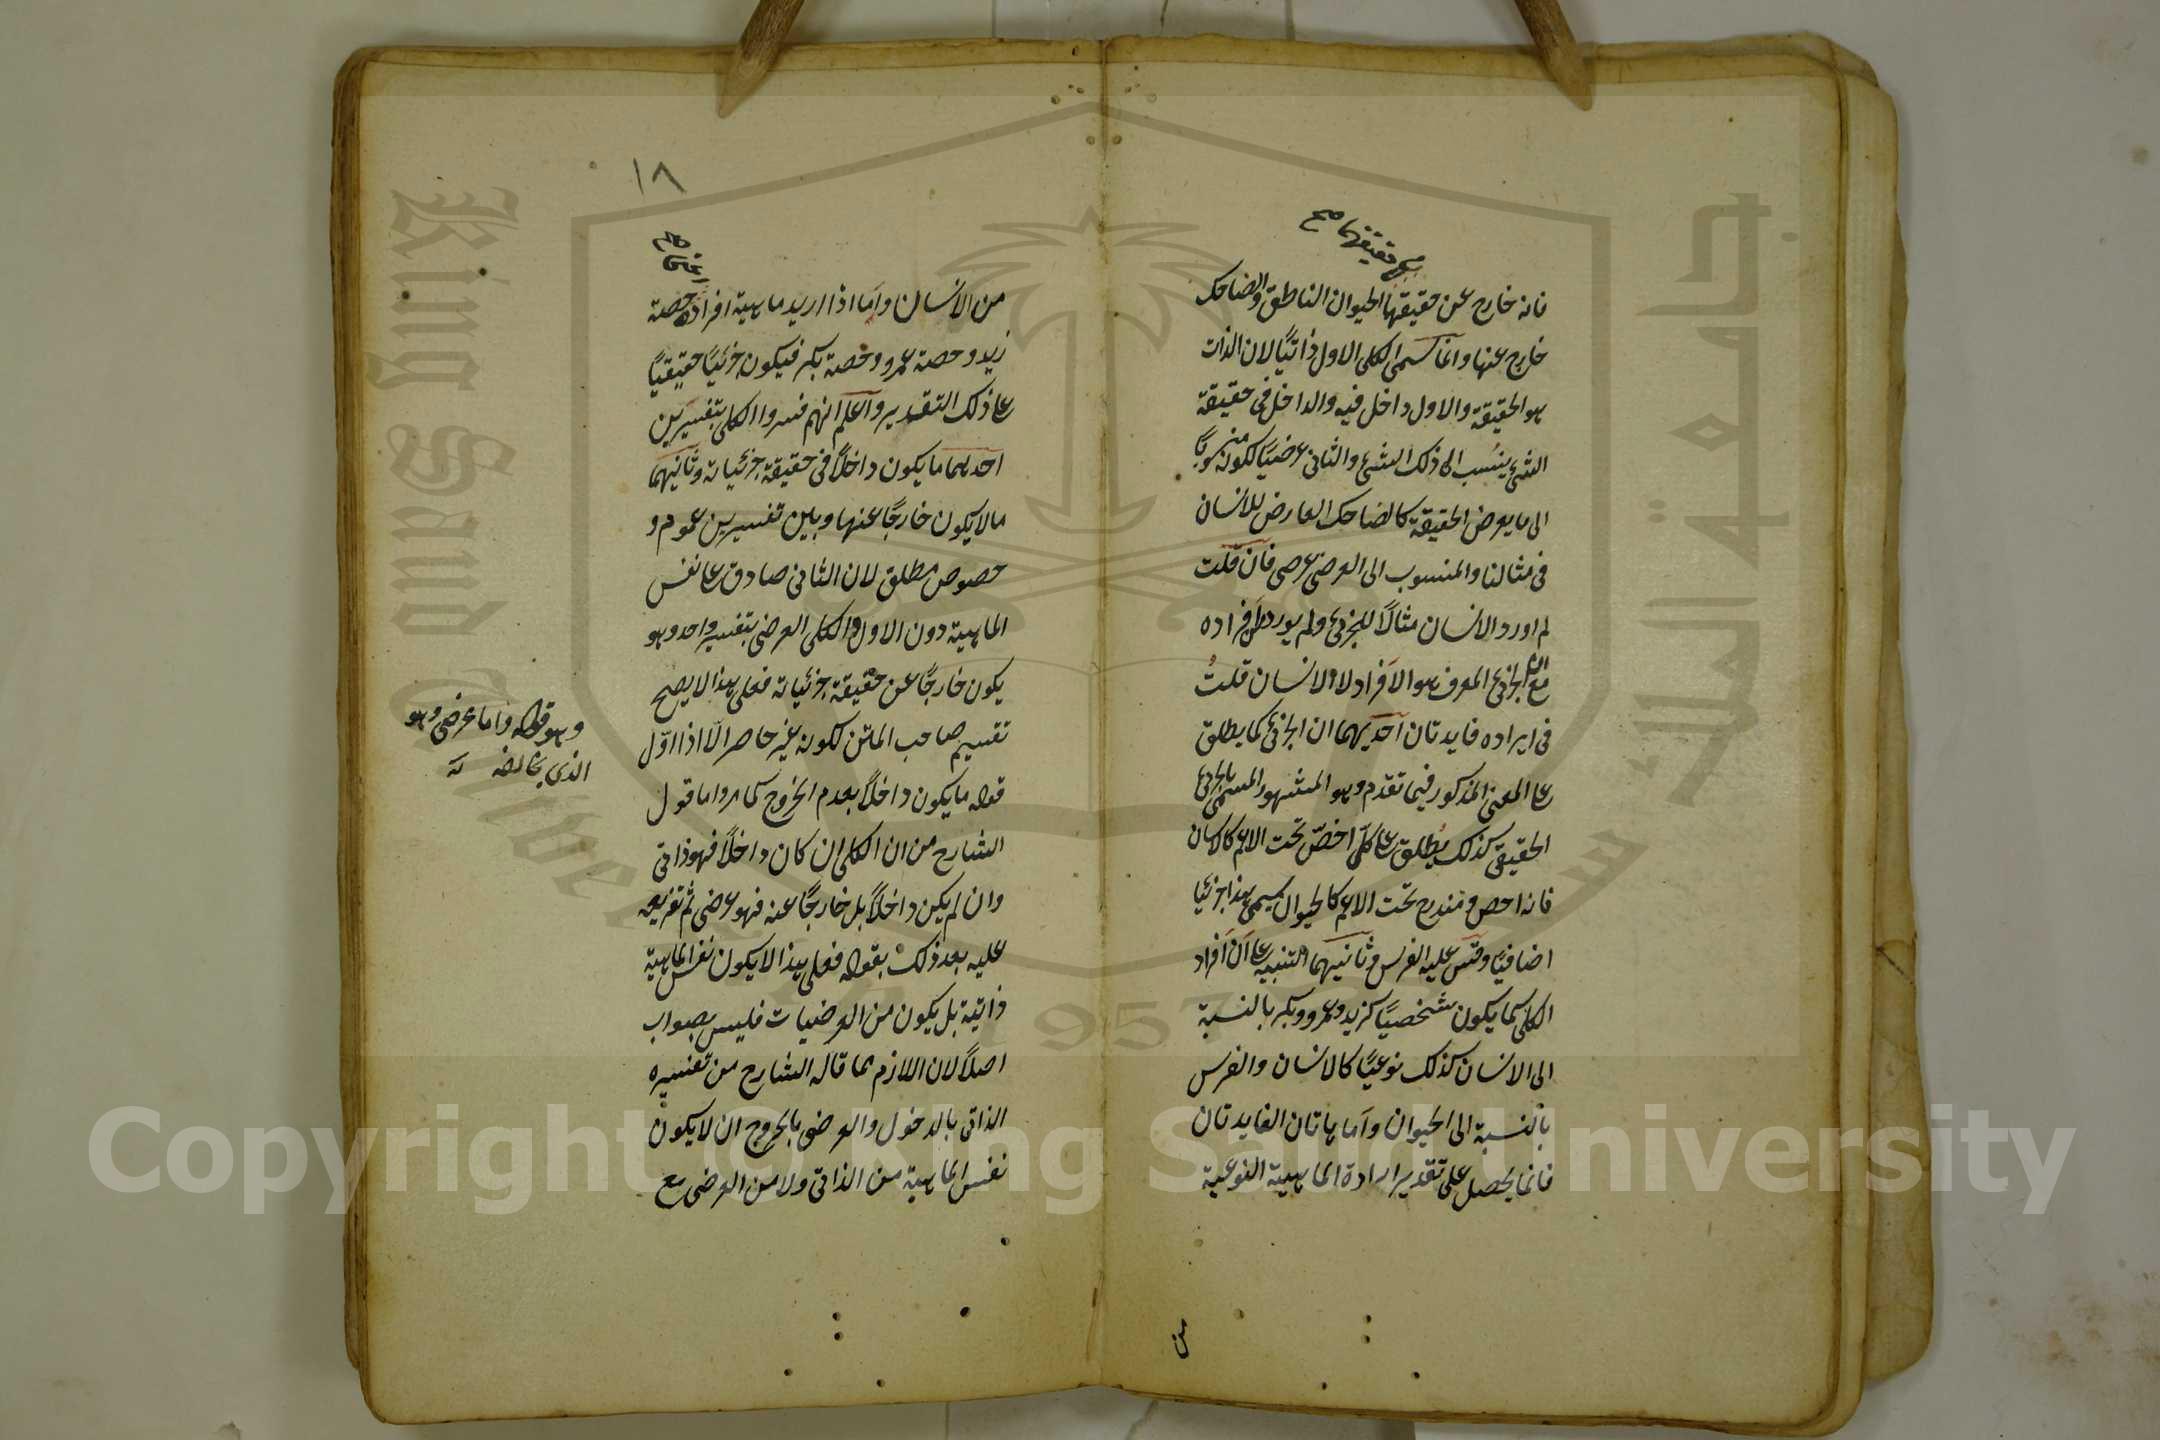 فانه خارج عن حقيقتها الحيوان الناطق والضاحك
خارج عنها وانما سمى الكلى الاول ذاتيًا لان الذات
هو الحقيقة والاول داخل فيه والداخل فى حقيقة
الشئ ينسب الى ذلك الشئ والثانى عرضيًا لكونه منسوبًا
الى ما يعرض الحقيقة كالضاحك العارض للانسان
فى مثالنا والمنسوب الى العرضى عرضى فان قلت
لم اورد الانسان مثالًا للجزئى ولم يورد افراده
مع ان الجزئى المعرف هو الافراد لا الانسان قلتُ
فى ايراده فايدتان احديهما ان الجزئى كما يطلق
على المعنى المذكور فيما تقدم وهو المشهور المسمى بالجزئى
الحقيقى كذلك يُطلق على كل اخصّ تحت الاعم كالانسان
فانه اخص ومندرج تحت الاعم كالحيوان يسمى هذا جزئيا
اضافيًا وقس عليه الفرس وثانيهما التنبيه على ان افراد
الكلى كما يكون شخصيًا كزيد وعمرو وبكر بالنسبة
الى الانسان كذلك نوعيًا كالانسان والفرس
بالنسبة الى الحيوان واما هاتان الفايدتان
فانما يحصل على تقدير ارادة الماهية النوعية
من
١٨
من الانسان واما اذا اريد ماهية افراده حصة
زيد وحصة عمرو وحصة بكر فيكون جزئيًا حقيقيًا
على ذلك التقدير واعلم انهم فسروا الكلى بتفسيرين
احدهما ما يكون داخلًا فى حقيقة جزئياته وثانيهما
مالا يكون خارجًا عنها وبين تفسيرين عموم و
خصوص مطلق لان الثانى صادق على نفس
الماهية دون الاول والكلى العرضى بتفسير واحد وهو
يكون خارجًا عن حقيقة جزئياته فعلى هذا لا يصح
تقسيم صاحب المتن لكونه غير حاصر الّا اذا اوّل
قوله ما يكون داخلًا بعدم الخروج كما مر واما قول
الشارح من ان الكلى ان كان داخلًا فهو ذاتى
وان لم يكن داخلًا بل خارجًا عنه فهو عرضى ثم تفريعه
عليه بعد ذلك بقوله فعلى هذا لا يكون نفس الماهية
ذاتية بل يكون من العرضيات فليس بصواب
اصلًا لان اللازم مما قاله الشارح من تفسيره
الذاتى بالدخول والعرضى بالخروج ان لا يكون
نفس الماهية من الذاتى ولا من العرضى مع
وهو قوله واما عرضى وهو
الذى يخالفه